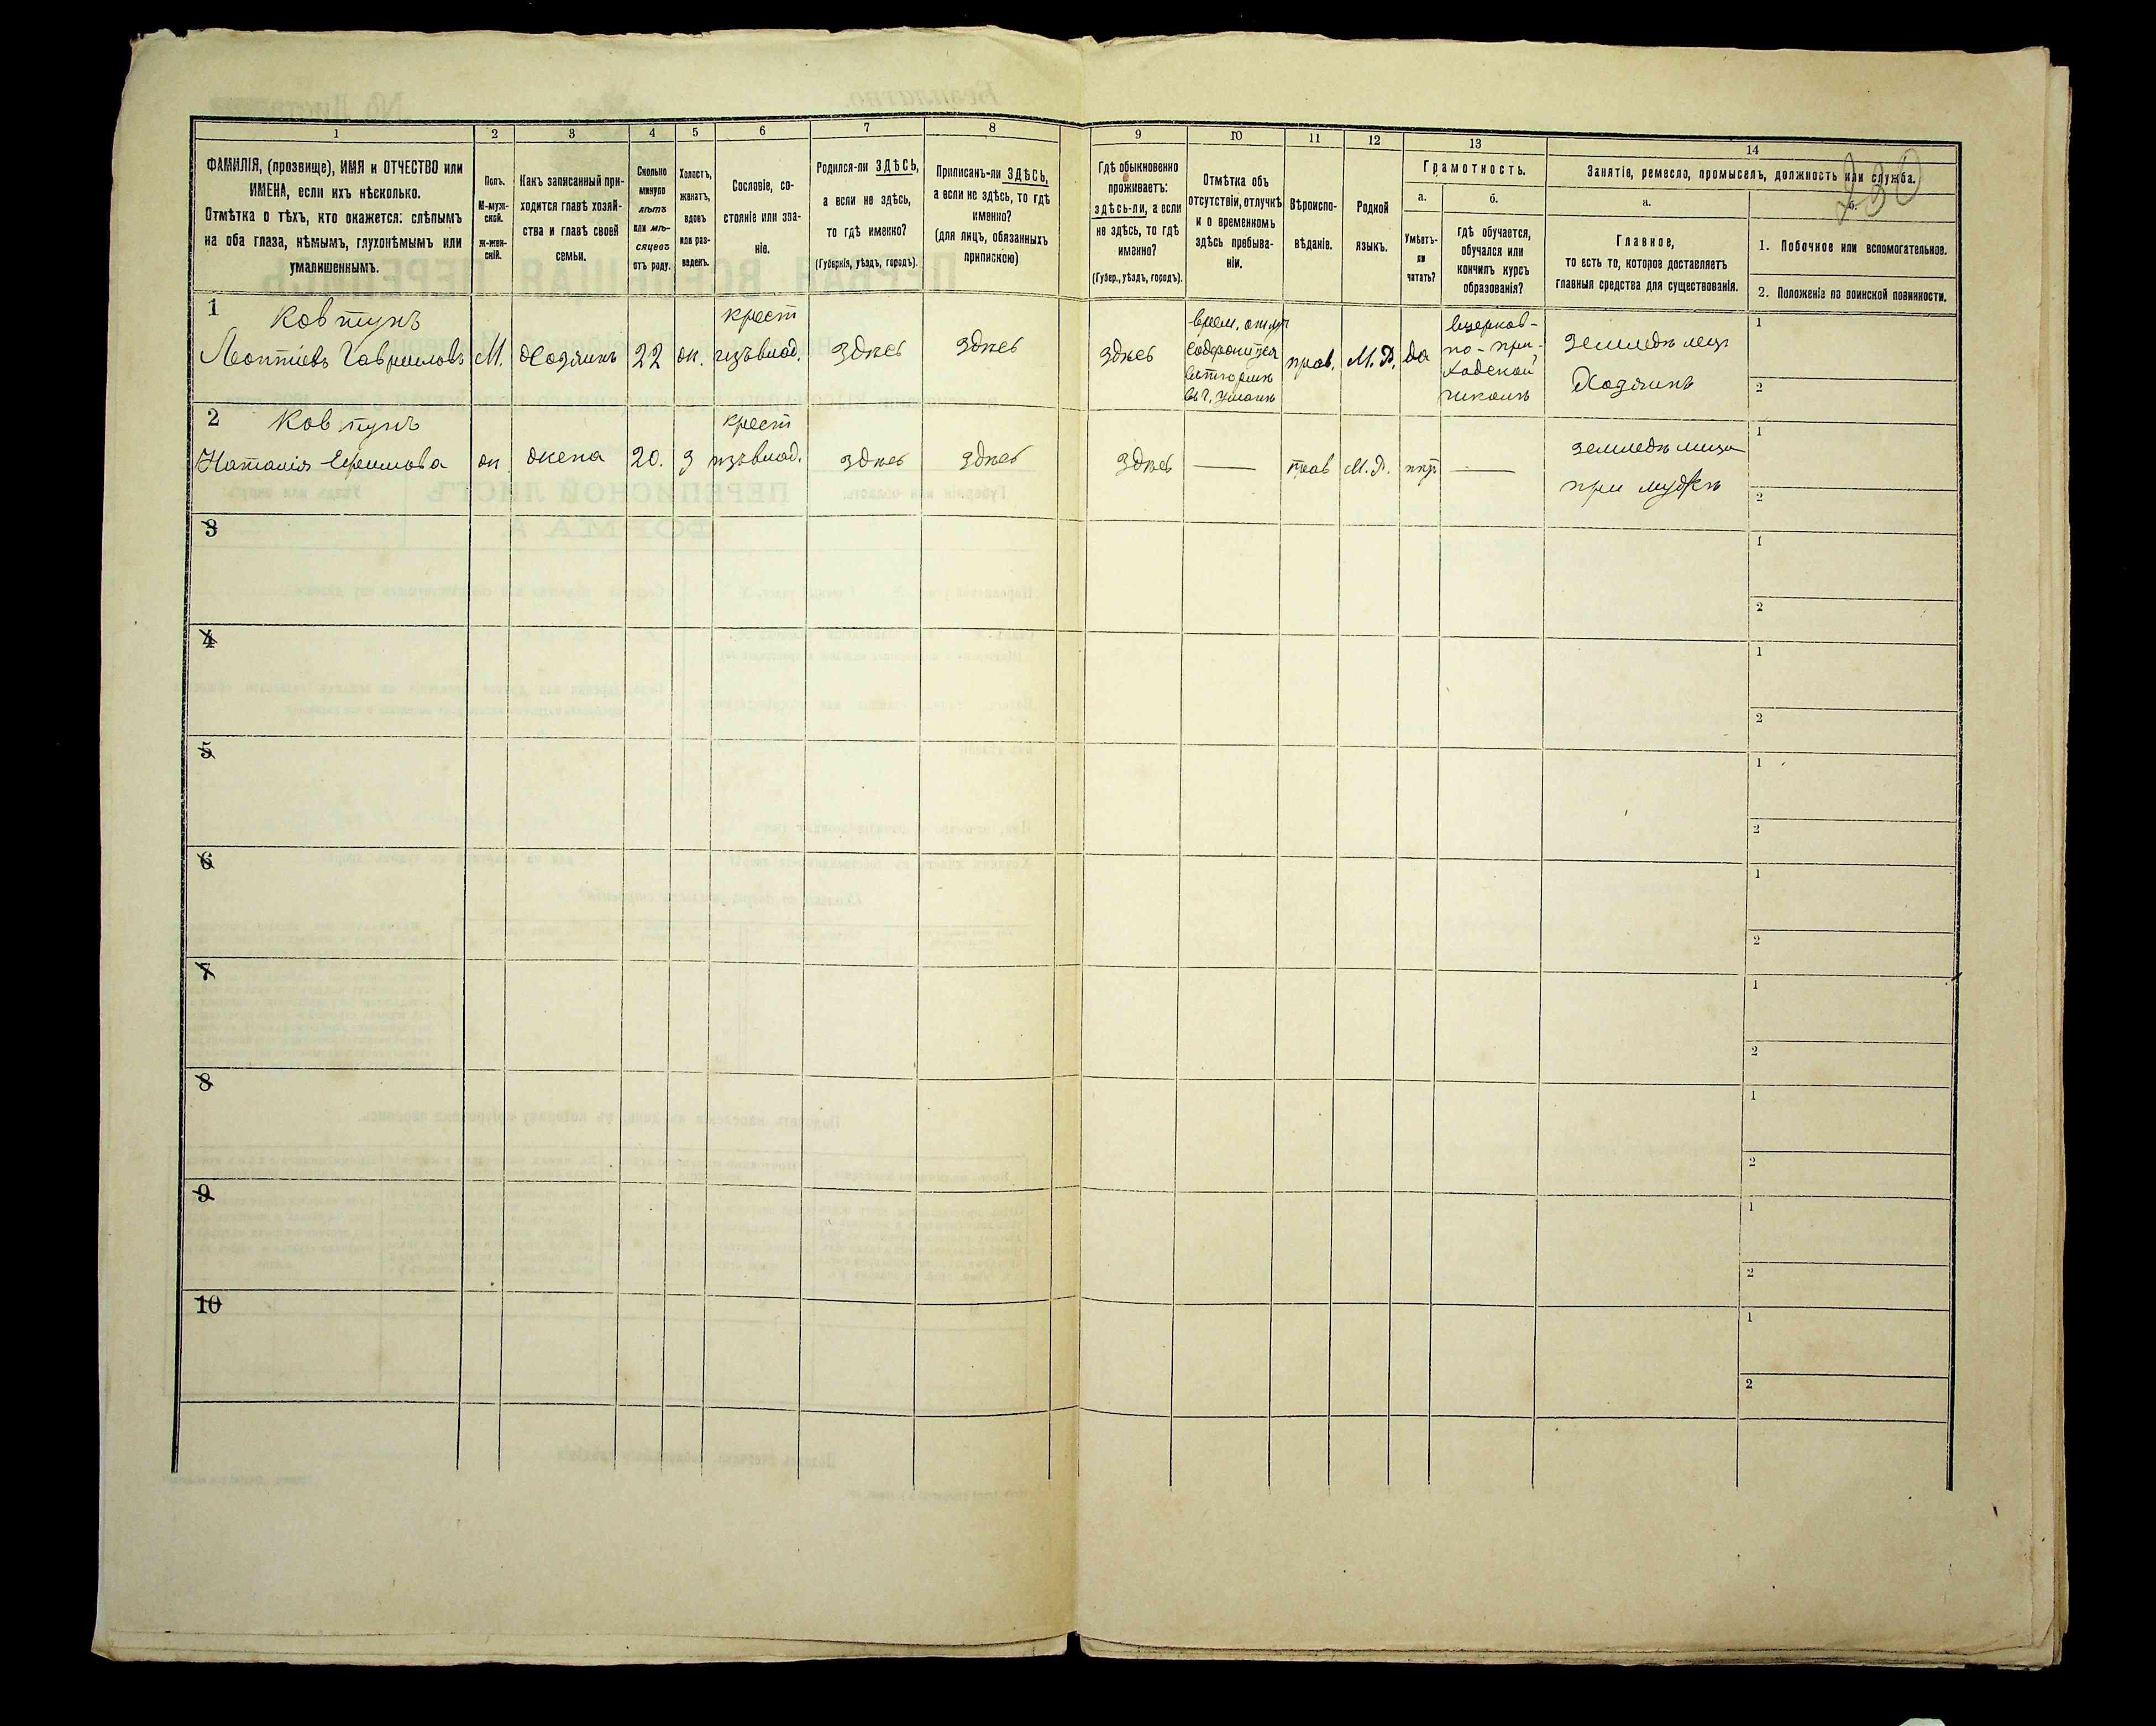 1 2 3 4 5 6 7 8 9 10 11 12 13 14
ФАМИЛІЯ, (прозвище), ИМЯ и ОТЧЕСТВО или
ИМЕНА, если ихъ нѣсколько.
Отмѣтка о тѣхъ, кто окажется: слѣпымъ
на оба глаза, нѣмымъ, глухонѣмымъ или
умалишеннымъ.
Полъ.
М-муж-
ской.
ж-жен-
скій.
Какъ записанный при-
ходится главѣ хозяй-
ства и главѣ своей
семьи.
Сколько
минуло
лѣтъ
или мѣ-
сяцевъ
отъ роду.
Холостъ,
женатъ,
вдовъ
или раз-
веденъ.
Сословіе, со-
стояніе или зва-
ніе.
Родился-ли ЗДѢСЬ,
а если не здѣсь,
то гдѣ именно?
(Губернія, уѣздъ, городъ).
Приписанъ-ли ЗДѢСЬ,
а если не здѣсь, то гдѣ
именно?
(для лицъ, обязанныхъ
припискою)
Гдѣ обыкновенно
проживаетъ:
здѣсь-ли, а если
не здѣсь, то гдѣ
именно?
(Губер., уѣздъ, городъ).
Отмѣтка объ
отсутствіи, отлучкѣ
и о временномъ
здѣсь пребыва-
ніи.
Вѣроиспо-
вѣданіе.
Родной
языкъ.
Грамотность.
а.
Умѣетъ-
ли
читать?
б.
гдѣ обучается,
обучался или
кончилъ курсъ
образованія?
Занятіе, ремесло, промыселъ, должность или служба.
а.
Главное,
то есть то, которое доставляетъ
главныя средства для существованія.
б.
1. Побочное или вспомогательное.
2. Положеніе по воинской повинности.
230
1
Ковтунъ
Леонтіевъ Гавриловъ
М.
Хозяинъ
22
ж.
крест
изъ влад.
здѣсь
здѣсь
здѣсь
врем. отлуч
Содержится
в г. Умани
прав.
М. Р.
да
Вцерков-
но-при-
ходской
школѣ
земледѣлец
Хозяинъ
1
2
2
Ковтунъ
Наталія Ефимова
ж
жена
20.
З
крест
изъ влад.
здѣсь
здѣсь
здѣсь
—
прав
М. Р.
нѣт
—
земледѣлица
при мужѣ
1
2
3
1
2
4
1
2
5
1
2
6
1
2
7
1
2
8
1
2
9
1
2
10
1
2